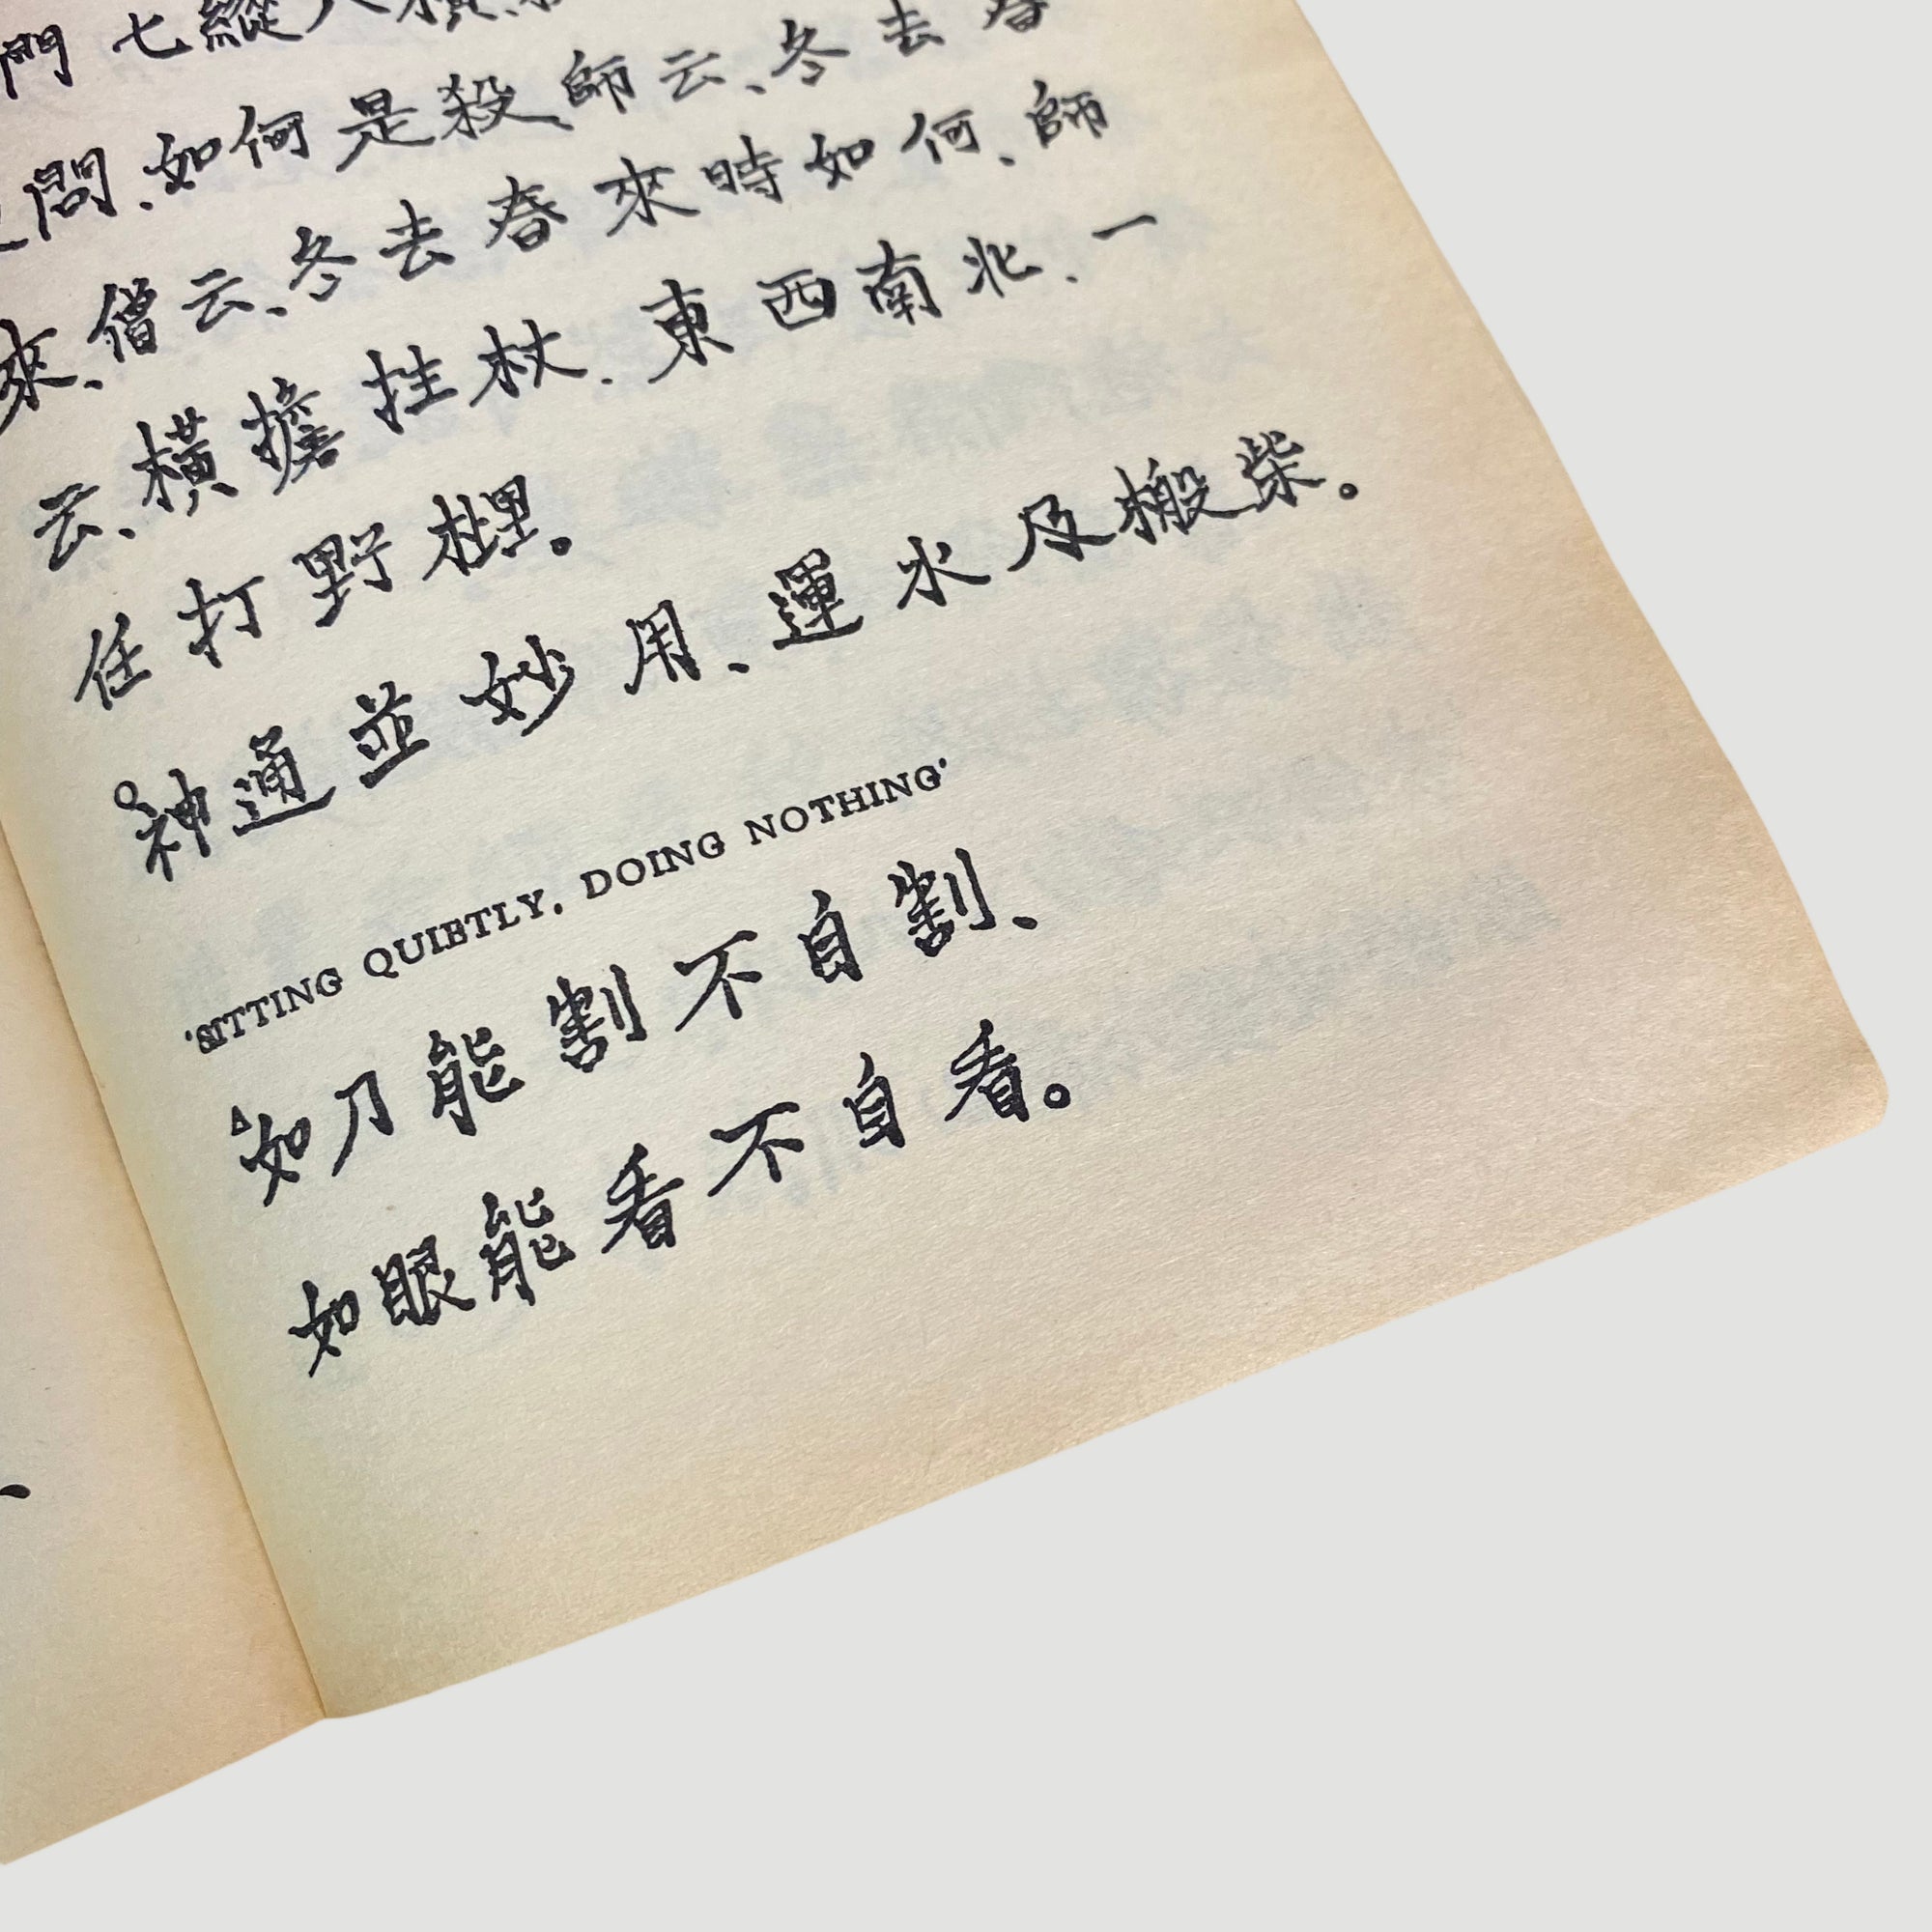 門七縱八橫
問、如何是殺、師云、冬去春
來、僧云、冬去春來時如何、師
云、橫擔拄杖、東西南北、一
任打野榸。
神通並妙用、運水及搬柴。
'SITTING QUIETLY, DOING NOTHING'
如刀能割不自割、
如眼能看不自看。